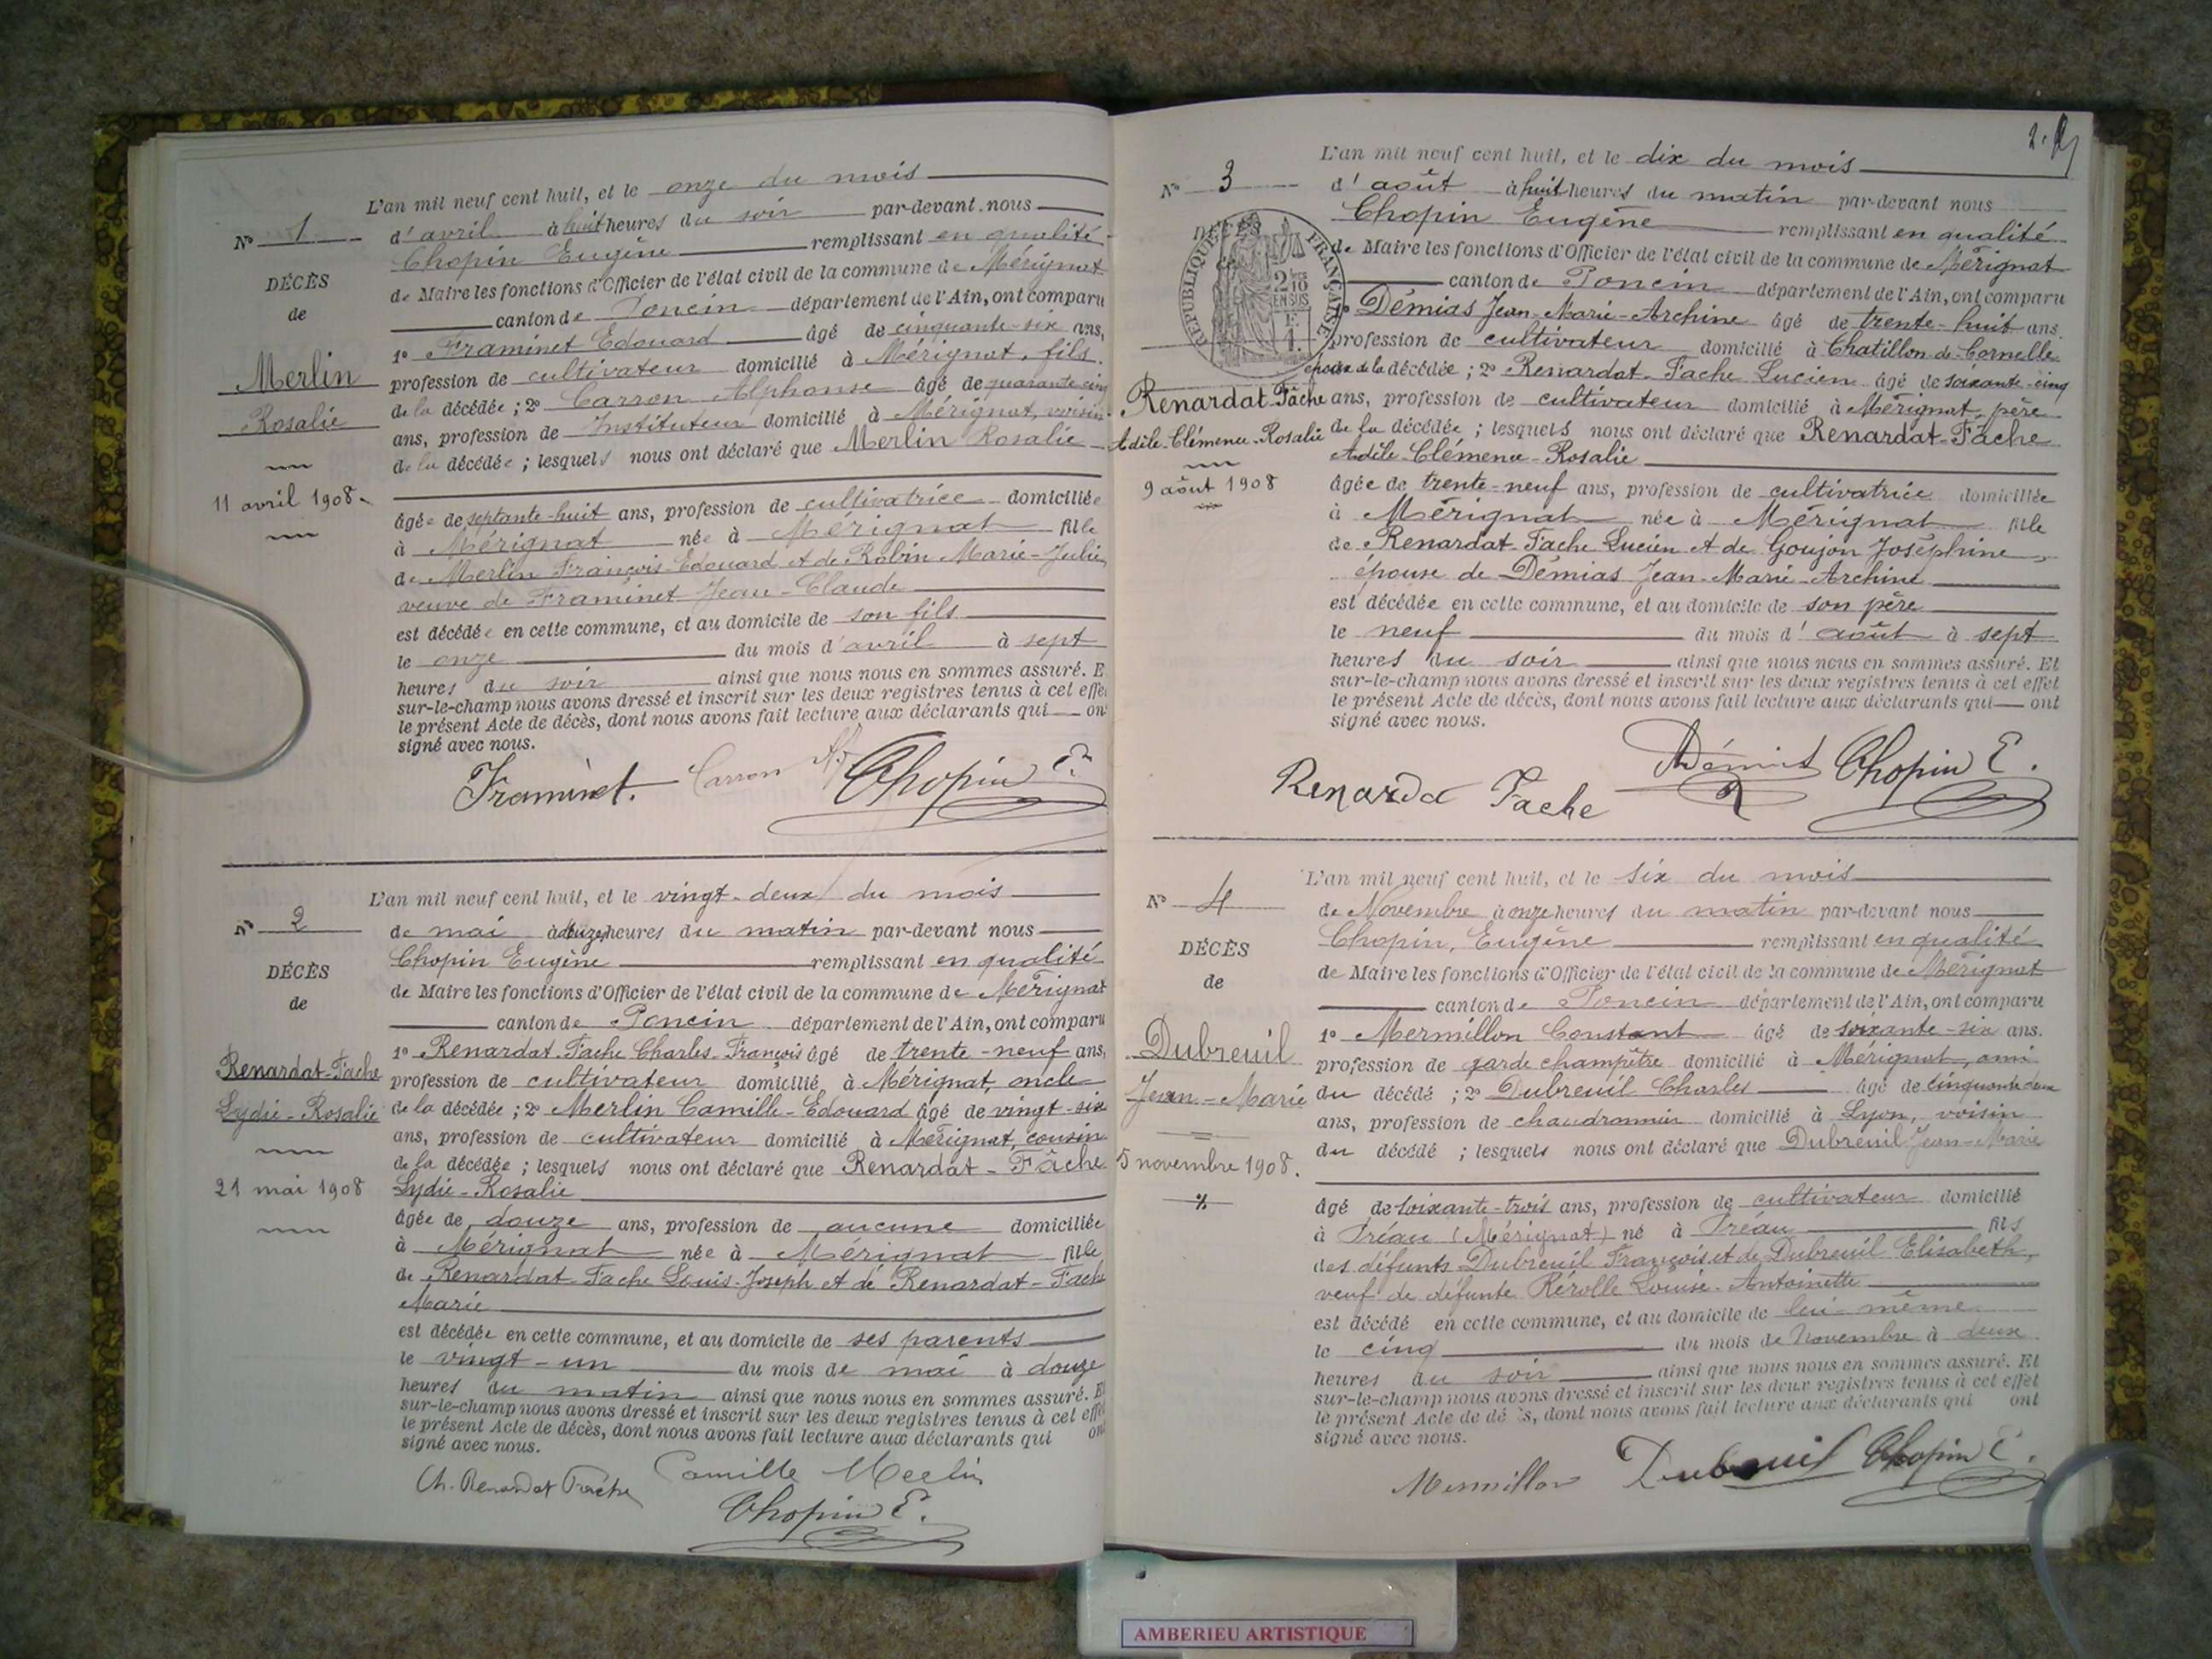 L'an mil neuf cent huit, et le onze du mois
Nº 1
d'avril à huit heures du soir par-devant nous
Chopin Eugène remplissant en qualité
DÉCÈS
de Maire les fonctions d'Officier de l'état civil de la commune de Mérignat
de
canton de Poncin département de l'Ain, ont comparu
1º Framinet Edouard âgé de cinquante-six ans,
Merlin
profession de cultivateur domicilié à Mérignat, fils
Rosalie
de la décédée ; 2º Carron Alphonse âgé de quarante cinq
ans, profession de Instituteur domicilié à Mérignat, voisin
de la décédée ; lesquels nous ont déclaré que Merlin Rosalie
11 avril 1908
âgée de septante-huit ans, profession de cultivatrice domiciliée
à Mérignat née à Mérignat fille
de Merlin François-Edouard et de Robin Marie-Julie
veuve de Framinet Jean-Claude
est décédée en cette commune, et au domicile de son fils
le onze du mois d'avril à sept
heures du soir ainsi que nous nous en sommes assuré. E
sur-le-champ nous avons dressé et inscrit sur les deux registres tenus à cet effe
le présent Acte de décès, dont nous avons fait lecture aux déclarants qui on
signé avec nous.
Framinet. Carron Chopin E.
L'an mil neuf cent huit, et le vingt-deux du mois
Nº 2
de mai à douze heures du matin par-devant nous
Chopin Eugène remplissant en qualité
DÉCÈS
de Maire les fonctions d'Officier de l'état civil de la commune de Mérignat
de
canton de Poncin département de l'Ain, ont comparu
1º Renardat-Fache Charles-François âgé de trente-neuf ans,
Renardat-Fache
profession de cultivateur domicilié à Mérignat, oncle
Lydie-Rosalie
de la décédée ; 2º Merlin Camille-Edouard âgé de vingt-six
ans, profession de cultivateur domicilié à Mérignat, cousin
de la décédée ; lesquels nous ont déclaré que Renardat-Fâche
21 mai 1908
Lydie-Rosalie
âgée de douze ans, profession de aucune domiciliée
à Mérignat née à Mérignat fille
de Renardat-Fache Louis-Joseph et de Renardat-Fache
Marie
est décédée en cette commune, et au domicile de ses parents
le vingt-un du mois de mai à douze
heures du matin ainsi que nous nous en sommes assuré. E
sur-le-champ nous avons dressé et inscrit sur les deux registres tenus à cet effe
le présent Acte de décès, dont nous avons fait lecture aux déclarants qui on
signé avec nous.
Ch. Renardat Fache Camille Merlin
Chopin E.
2.
L'an mil neuf cent huit, et le dix du mois
Nº 3
d'août à huit heures du matin par-devant nous
Chopin Eugène remplissant en qualité
DÉCÈS
RÉPUBLIQUE FRANÇAISE
de Maire les fonctions d'Officier de l'état civil de la commune de Mérignat
2/10 EN SUS
canton de Poncin département de l'Ain, ont comparu
1º Démias Jean-Marie-Archine âgé de trente-huit ans
profession de cultivateur domicilié à Chatillon-de-Cornelle
époux de la décédée ; 2º Renardat-Fache Lucien âgé de soixante-cinq
Renardat-Fâche
ans, profession de cultivateur domicilié à Mérignat, père
Adèle-Clémence-Rosalie
de la décédée ; lesquels nous ont déclaré que Renardat-Fâche
Adèle-Clémence-Rosalie
9 août 1908
âgée de trente-neuf ans, profession de cultivatrice domiciliée
à Mérignat née à Mérignat fille
de Renardat-Fache Lucien et de Goujon Joséphine,
épouse de Démias Jean-Marie-Archine
est décédée en cette commune, et au domicile de son père
le neuf du mois d'août à sept
heures du soir ainsi que nous nous en sommes assuré. Et
sur-le-champ nous avons dressé et inscrit sur les deux registres tenus à cet effet
le présent Acte de décès, dont nous avons fait lecture aux déclarants qui ont
signé avec nous.
Renarda Fache Démias Chopin E.
L'an mil neuf cent huit, et le six du mois
Nº 4
de Novembre à onze heures du matin par-devant nous
Chopin, Eugène remplissant en qualité
DÉCÈS
de Maire les fonctions d'Officier de l'état civil de la commune de Mérignat
de
canton de Poncin département de l'Ain, ont comparu
1º Mermillon Constant âgé de soixante-six ans.
Dubreuil
profession de garde champêtre domicilié à Mérignat, ami
Jean-Marie
du décédé ; 2º Dubreuil Charles âgé de cinquante deux
ans, profession de chaudronnier domicilié à Lyon, voisin
5 novembre 1908.
du décédé ; lesquels nous ont déclaré que Dubreuil Jean-Marie
âgé de soixante-trois ans, profession de cultivateur domicilié
à Préau (Mérignat) né à Préau fils
des défunts Dubreuil François et de Dubreuil Elisabeth,
veuf de défunte Rérolle Louise-Antoinette
est décédé en cette commune, et au domicile de lui-même
le cinq du mois de Novembre à deux
heures du soir ainsi que nous nous en sommes assuré. Et
sur-le-champ nous avons dressé et inscrit sur les deux registres tenus à cet effet
le présent Acte de dé s, dont nous avons fait lecture aux déclarants qui ont
signé avec nous.
Mermillon Dubreuil Chopin E.
AMBERIEU ARTISTIQUE